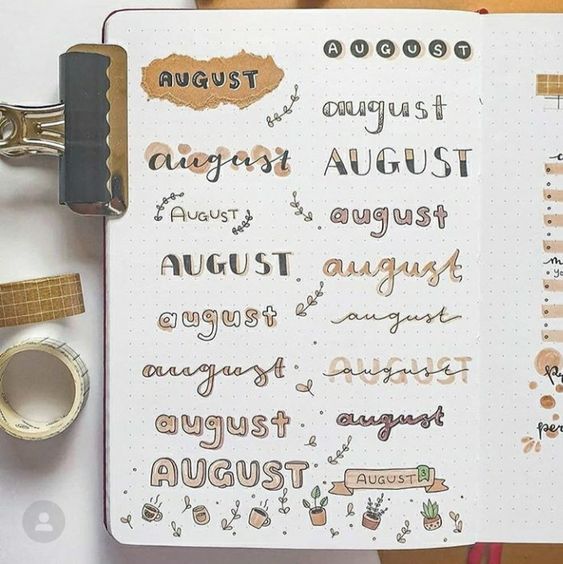 AUGUST
august
AUGUST
AUGUST
august
august
august
AUGUST
AUGUST
august
AUGUST
august
august
august
AUGUST
august
august
AUGUST 3